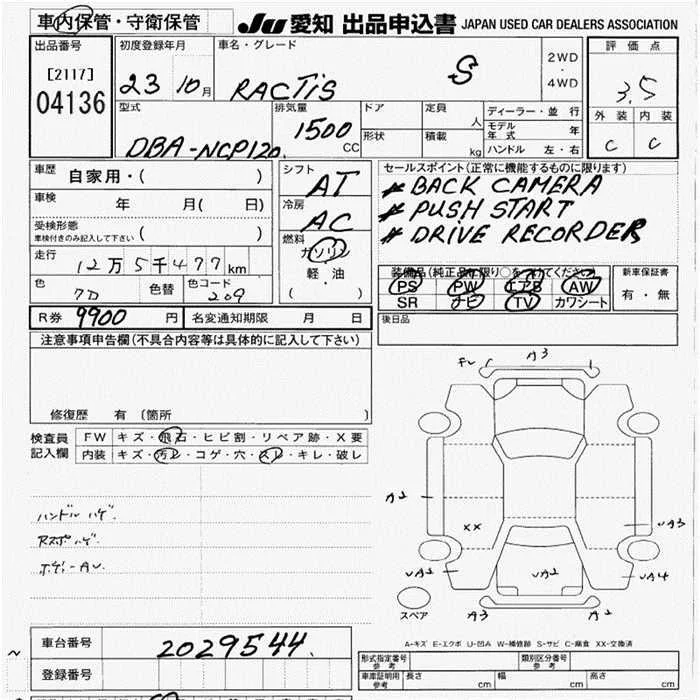 車内保管・守衛保管 JU 愛知 出品申込書 JAPAN USED CAR DEALERS ASSOCIATION
出品番号 初度登録年月 車名・グレード 2WD ・ 4WD 評価点
[2117] 04136 23 10月 RACTIS S 3.5
外装 内装
C C
型式 排気量 ドア 定員 人 ディーラー・並行
DBA-NCP120. 1500 CC 形状 積載 kg モデル年式 年
ハンドル 左・右
車歴 自家用・( ) シフト AT セールスポイント(正常に機能するものに限ります)
車検 年 月( 日) 冷房 AC # BACK CAMERA
# PUSH START
受検形態 車検付きのみ記入して下さい ( ) 燃料 ガソリン # DRIVE RECORDER
走行 12万5千477km 軽・油
( )
色 7D 色替 色コード 209
装備品(純正品に限り○をつけてください) 新車保証書
PS PW エアB AW 有・無
SR ナビ TV カワシート
R券 9900 円 名変通知期限 月 日 後日品
注意事項申告欄(不具合内容等は具体的に記入して下さい)
修復歴 有 [箇所 ]
検査員記入欄 FW キズ・飛石・ヒビ割・リペア跡・X要
内装 キズ・汚レ・コゲ・穴・スレ・キレ・破レ
ハンドルハゲ.
ボディーAU.
A3
A2
XX
UA3
UA2
UA2
UA4
スペア
A3
A2
A-キズ E-エクボ U-凹み W-補修跡 S-サビ C-腐食 XX-交換済
車台番号 2029544.
登録番号
形式指定番号 参考 類別区分番号 参考
車庫証明用 参考 長さ 幅 高さ